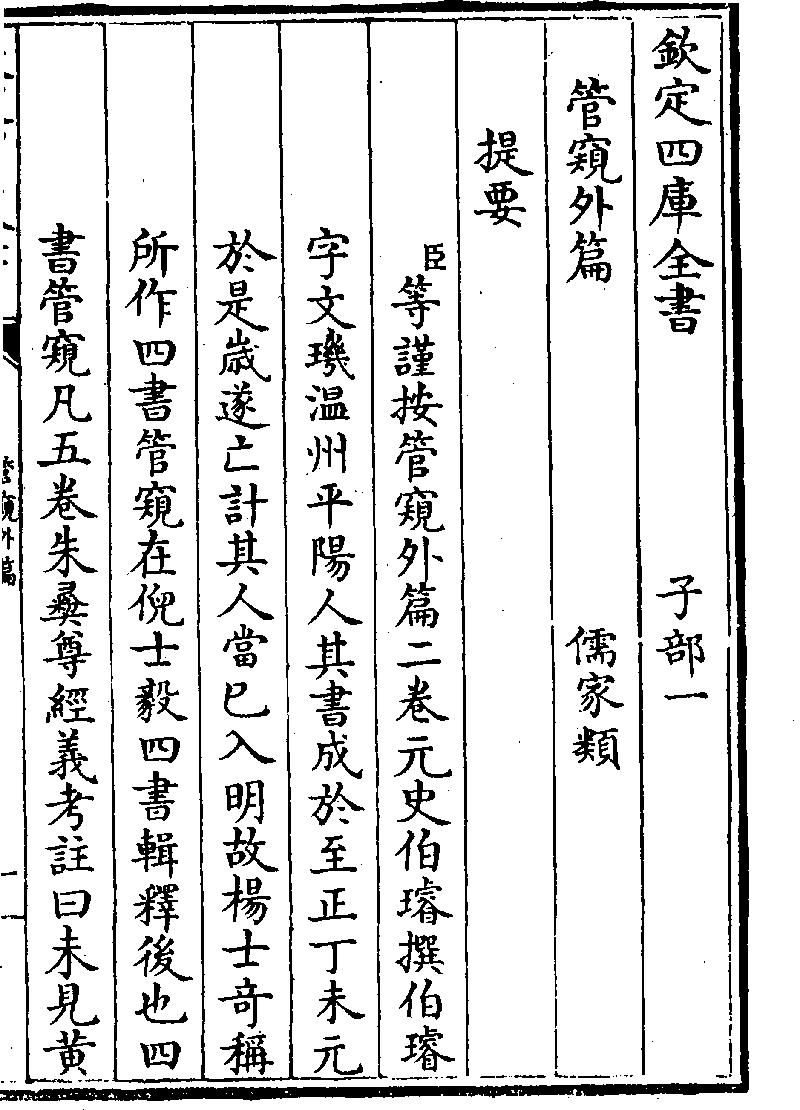 欽定四庫全書 子部一
管窺外篇 儒家類
提要
臣等謹按管窺外篇二卷元史伯璿撰伯璿
字文璣温州平陽人其書成於至正丁未元
於是歲遂亡計其人當已入明故楊士竒稱
所作四書管窺在倪士毅四書輯釋後也四
書管窺凡五卷朱彞尊經義考註曰未見黄
管窺外篇
一